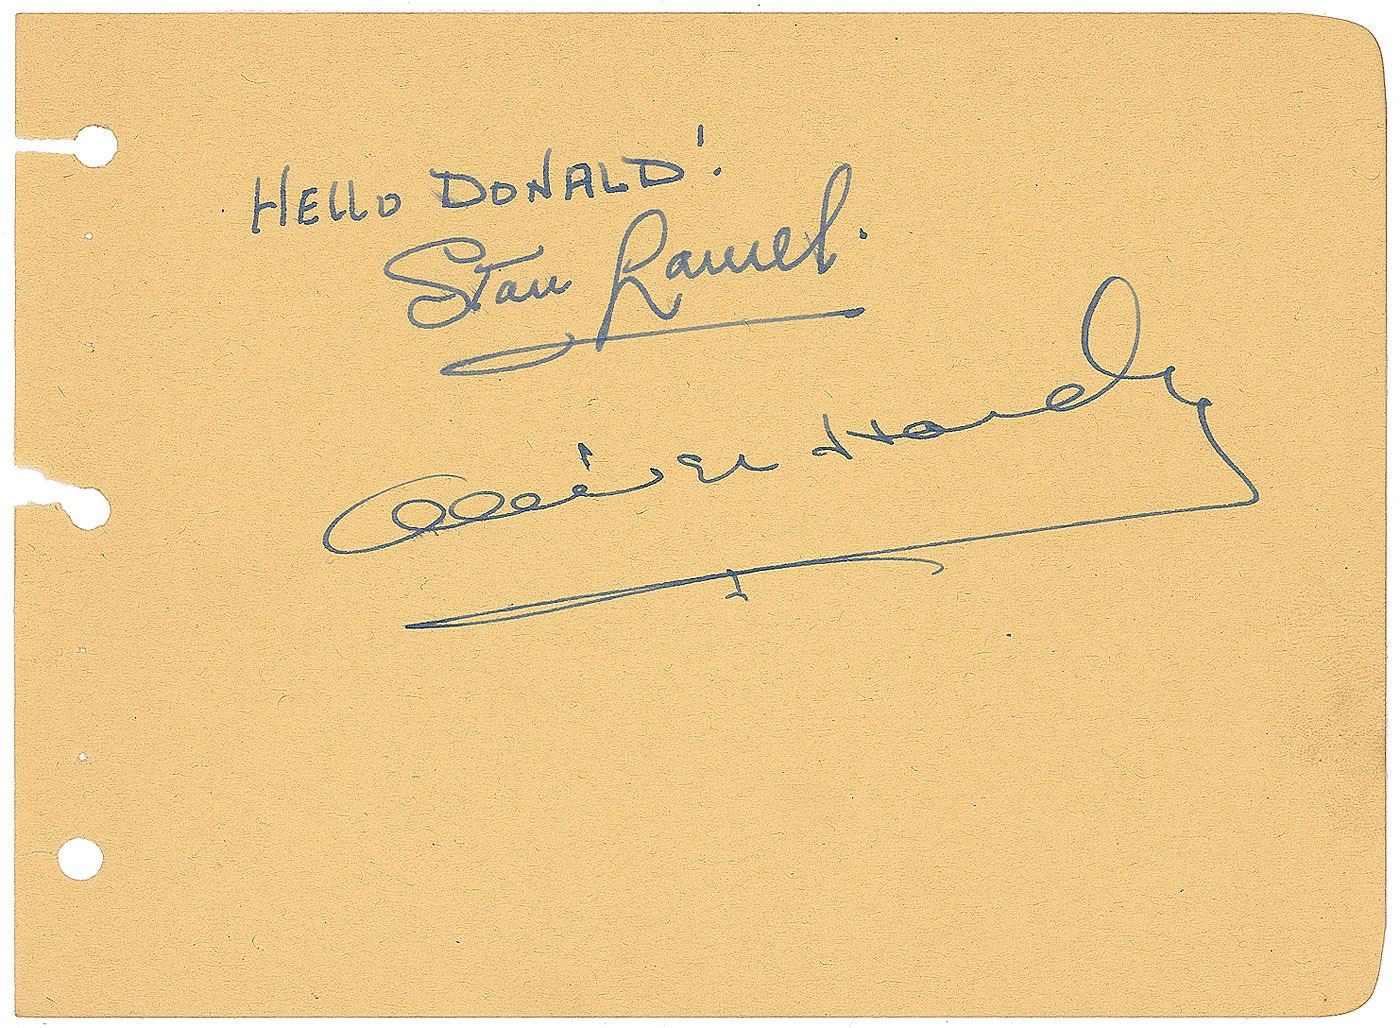 HELLO DONALD!
Stan Laurel.
Oliver Hardy